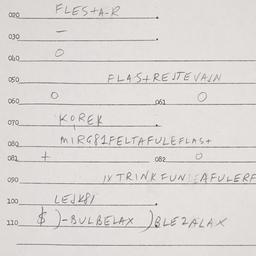 020 FLES+A-R
030 –
040 O
050 FLA+REJTEVAJN
060 O 061 O
070 KOREK
080 MIRG81FELTAFULEFLAS+
081 + 082 O
090 IXTRINKFUN AFULERF
100 LEJK81
110 $ )-BULBELAX )BLEZALAX